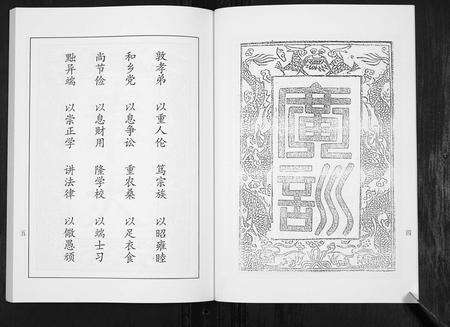 四
敦孝弟 以重人伦 笃宗族 以昭雍睦
和乡党 以息争讼 重农桑 以足衣食
尚节俭 以息财用 隆学校 以端士习
黜异端 以崇正学 讲法律 以儆愚顽
五